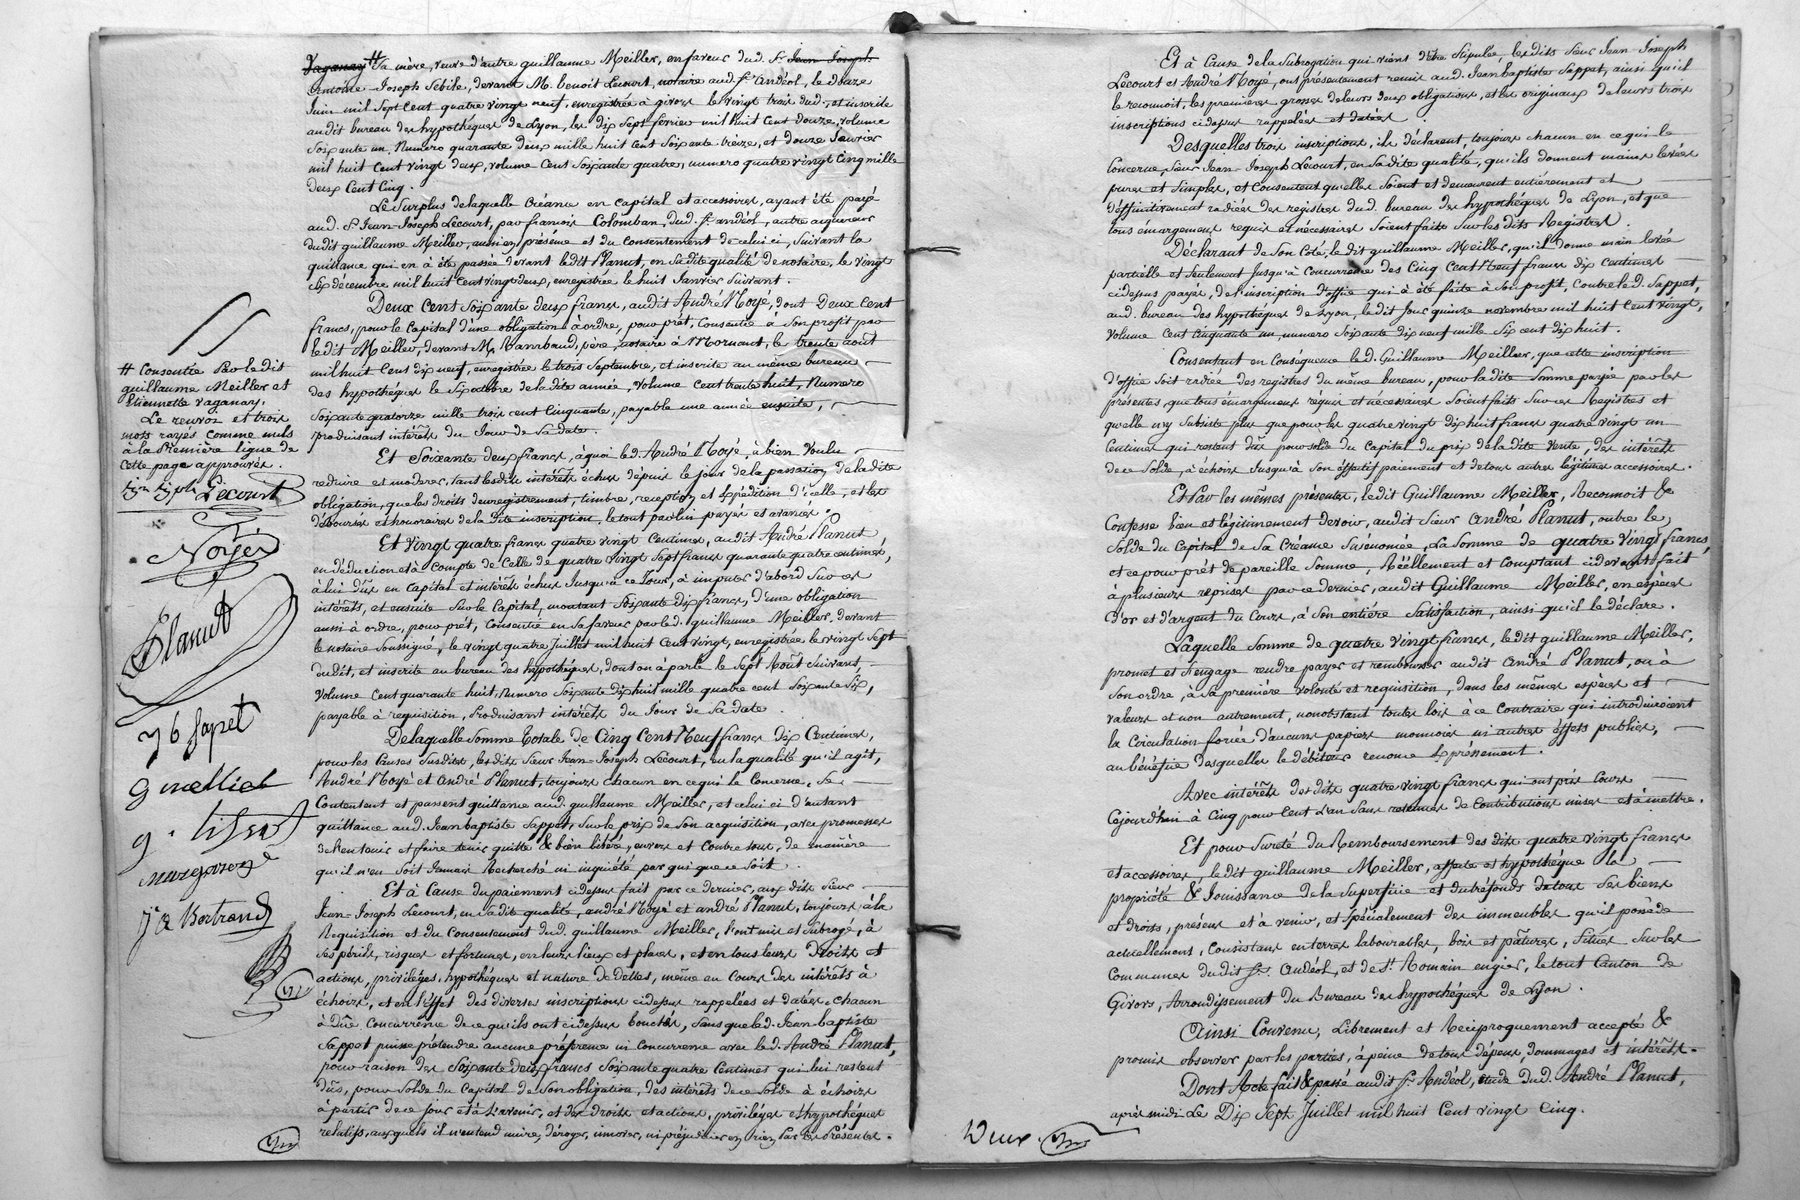 Vaganay # Sa mère, veuve d'autre guillaume Meiller, en faveur dud. Sr. Jean Joseph
Antoine Joseph Sebile, devant M. benoit Lecourt, notaire aud. St. Andéol, le douze
Juin mil Sept Cent quatre vingt neuf, enregistrée à givors le vingt trois dud., et inscrite
audit bureau des hypothéques de Lyon, les dix Sept fevrier mil huit Cent douze, volume
Soixante un, Numero quarante deux mille huit Cent Soixante treize, et douze Janvier
mil huit Cent vingt deux, volume Cent Soixante quatre, numero quatre vingt Cinq mille
deux Cent Cinq.
Le Surplus de laquelle Créance en capital et accessoires, ayant été payé
aud. Sr. Jean-Joseph Lecourt, par françois Colomban, dud. St. andéol, autre aquereur
dudit guillaume Meiller, aussi en présence et du Consentement de celui ci, Suivant la
quittance qui en a été passée devant ledit Planut, en Sa dite qualité de notaire, le vingt
Six décembre mil huit Cent vingt deux, enregistrée le huit Janvier Suivant.
Deux Cent Soixante deux francs, audit André Noyé, dont Deux Cent
francs, pour le Capital d'une obligation à ordre, pour prêt, Consentie à Son profit par
ledit Meiller, devant Me. Vanrbaud, père, notaire à Mornant, le trente aout
mil huit Cent dix neuf, enregistrée le trois Septembre, et inscrite au même bureau
des hypothéques le Six octobre de la dite année, Volume Cent trente huit, Numero
Soixante quatorze mille trois cent Cinquante, payable une année ensuite,
produisant intérêts du Jour de Sa date.
Et Soixante deux francs, à quoi led. André Noyé, à bien voulu
reduire et moderer, tant lesdits intérêts échus depuis le jour de la passation de la dite
obligation, que les droits d'enregistrement, timbre, reception et expédition d'icelle, et les
déboursés et honoraires de la dite inscription, le tout par lui payés et avancés.
Et vingt quatre francs quatre vingt Centimes, audit André Planut
en déduction et à Compte de Celle de quatre vingt Sept francs quarante quatre centimes,
à lui dûs en Capital et intérêts échus Jusqu'à ce Jour, à imputer d'abord Sur ces
intérêts, et ensuite Sur le Capital, montant Soixante dix francs, d'une obligation
aussi à ordre, pour prêt, Consentie en Sa faveur par led. guillaume Meiller, devant
le notaire Soussigné, le vingt quatre Juillet mil huit Cent vingt, enregistrée le vingt Sept
dudit, et inscrite au bureau des hypothéques, dont on à parlé le Sept Août Suivant,
Volume Cent quarante huit, Numero Soixante dix huit mille quatre cent Soixante Six,
payable à requisition, Produisant intérêts du Jour de Sa date.
De laquelle Somme totale de Cinq Cent Neuf francs dix Centimes,
pour les Causes Susdites, lesdits Sieurs Jean-Joseph Lecourt, en la qualité qu'il agit,
André Noyé et André Planut, toujours chacun en ce qui le Concerne, Se
Contentent et passent quittance aud. guillaume Meiller, et celui ci d'autant
quittance aud. Jean baptiste Sappet, Sur le prix de Son acquisition, avec promesses
de l'en tenir et faire tenir quitte & bien libéré, envers et Contre tous, de manière
qu'il n'en Soit Jamais Recherché ni inquiété par qui que ce Soit.
Et à Cause du paiement cidessus fait par ce dernier, aux dits Sieurs
Jean-Joseph Lecourt, en Sa dite qualité, andré Noyé et andré Planut, toujours à la
Requisition et du Consentement dud. guillaume Meiller, l'ont mis et Subrogé, à
Ses périls, risques et fortunes, en leurs lieux et places, et en tous leurs Droits et
actions, privilèges, hypothéques et nature de Dettes, même au Cours des intérêts à
échoir, et en l'effet des diverses inscriptions cidessus rappelées et datées, chacun
à dûe Concurrence de ce qu'ils ont cidessus touchés, Sans que led. Jean baptiste
Sappet puisse prétendre aucune préférence ni Concurrence avec led. André Planut,
pour raison des Soixante deux francs Soixante quatre Centimes qui lui restent
dûs, pour Solde du Capital de Son obligation, des intérêts de ce Solde à échoir
à partir de ce Jour et à l'avenir, et des droits et actions, privilèges et hypothéques
relatifs, auxquels il n'entend nuire, déroger, innover, ni préjudicier en rien Par Ces Présentes.
# Consentie Par le dit
guillaume Meiller et
Etiennette Vaganay.
Le renvoi et trois
mots rayés comme nuls
à la Première ligne de
Cette page approuvés.
Lecourt
Noyé
Planut
J b Sapet
g meillier
J B Bertrand
Et à Cause de la Subrogation qui vient d'être Stipulée, lesdits Sieurs Jean-Joseph
Lecourt et André Noyé, ont présentement remis aud. Jean baptiste Sappet, ainsi qu'il
le reconnoit, les premières grosses de leurs deux obligations, et les originaux de leurs trois
inscriptions cidessus rappelées et datées.
Desquelles trois inscriptions, ils déclarent, toujours chacun en ce qui le
Concerne, Sieur Jean-Joseph Lecourt, en Sa dite qualité, qu'ils donnent mains levées
pures et Simples, et Consentent qu'elles Soient et demeurent entièrement et
déffinitivement radiées des registres dud. bureau des hypothéques de Lyon, et que
tous émargemens requis et nécessaires Soient faits Sur les dits Registres.
Déclarant de Son Coté, le dit guillaume Meiller, qu'il donne main levée
partielle et Seulement Jusqu'à Concurrence des Cinq Cent Neuf francs dix centimes
cidessus payés, de l'inscription d'office qui à été faite à Son profit, Contre led. Sappet,
aud. bureau des hypothéques de Lyon, le dit Jour quinze novembre mil huit Cent vingt,
Volume Cent Cinquante un, numero Soixante dix neuf mille Six cent dix huit.
Consentant en Conséquence led. Guillaume Meiller, que cette inscription
d'office Soit radiée des registres du même bureau, pour la dite Somme payée par les
présentes, que tous émargemens réquis et nécessaires Soient faits Sur ces Registres et
qu'elle n'y Subsiste plus que pour les quatre vingt dix huit francs quatre vingt un
Centimes qui restent dûs pour Solde du Capital du prix de la dite Vente, des intérêts
de ce Solde, à échoir Jusqu'à Son éffectif paiement et de tous autres légitimes accessoires.
Et Par les mêmes présentes, le dit Guillaume Meiller, Reconnoit &
Confesse bien et légitimement devoir, audit Sieur André Planut, outre le
Solde du Capital de Sa Créance Susénomée, La Somme de quatre vingt francs
et ce pour prêt de pareille Somme, Réellement et Comptant cidevant fait
à plusieurs reprises par ce dernier, audit Guillaume Meiller, en espèces
d'or et d'argent du Cours, à Son entière Satisfaction, ainsi qu'il le déclare.
Laquelle Somme de quatre vingt francs, le dit guillaume Meiller,
promet et S'engage rendre payer et rembourser audit André Planut, ou à
Son ordre, à Sa première volonté et requisition, dans les mêmes espèces et
valeurs et non autrement, nonobstant toutes lois à ce Contraire qui introduiroient
la Circulation forcée d'aucuns papiers monnoies ni autres éffets publics,
au bénéfice desquelles le débiteur renonce Expréssement.
Avec intérêts des dits quatre vingt francs qui ont pris Cours
Cejourd'hui à Cinq pour Cent l'an Sans retenues de Contributions mises et à mettre.
Et pour Sureté du Remboursement des dits quatre vingt francs
et accessoires, le dit guillaume Meiller, affecte et hypothéque la
propriété & Jouissance de la Superficie et du tréfonds de tous Ses biens
et droits, présens et à venir, et Spécialement des immeubles qu'il possède
actuellement, Consistans en terres labourables, bois et pâtures, Situés Sur les
Communes dudit St. Andéol, et de St. Romain en gier, le tout Canton de
Givors, Arrondissement du Bureau des hypothéques de Lyon.
Ainsi Convenu, Librement et Réciproquement accepté &
promis observer par les parties, à peine de tous dépens, dommages et intérêts.
Dont Acte fait & passé audit St. Andéol, étude dud. André Planut,
après midi Le Dix Sept Juillet mil huit Cent vingt Cinq.